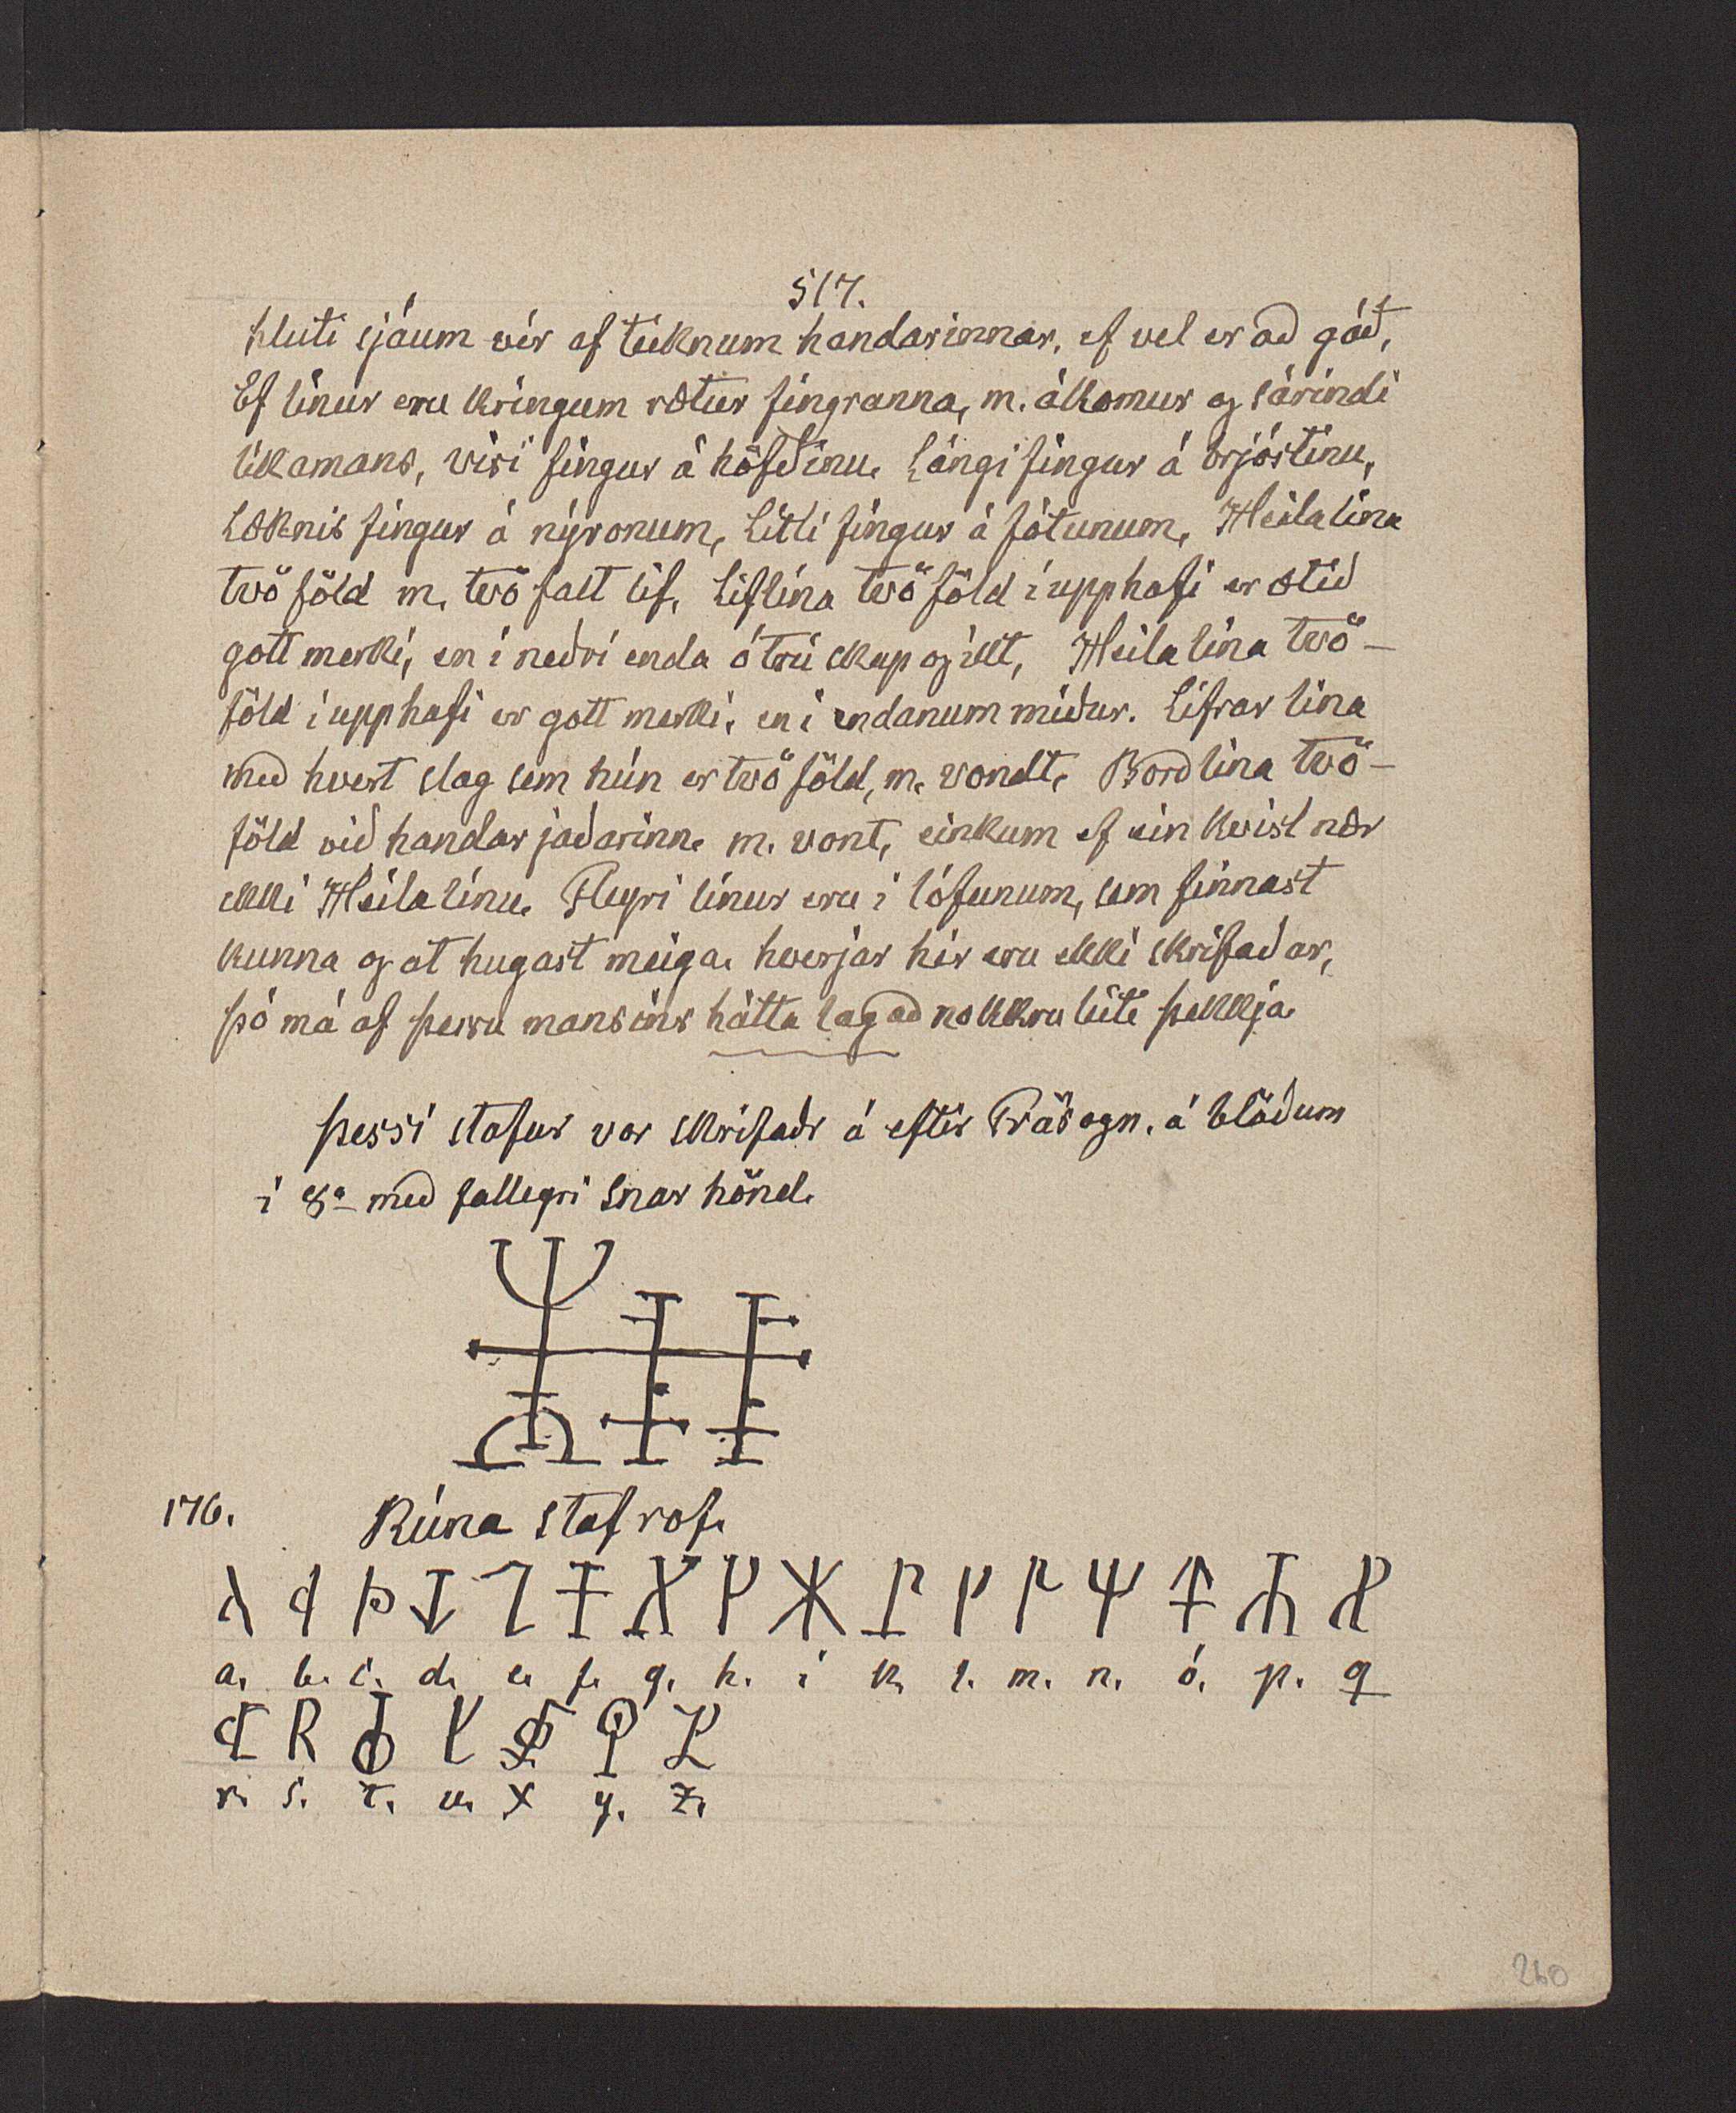 517.
hluti sjáum vér af teiknum handarinnar, ef vel er að gáð,
Ef línur eru kringum rætur fingranna, m. ákomur og sárindi
líkamans, vísi fingur á höfðinu. Lángi fingur á brjóstinu,
Læknis fingur á nýronum, Litli fingur á fótunum, Heila lína
tvö föld m. tvö falt líf, Líflína tvö föld í upphafi er ætið
gott merki, en í neðri enda ótrú skap og illt, Heila lína tvö-
föld í upphafi er gott merki, en í endanum miður. Lifrar lína
með hvert slag sem hún er tvö föld, m. vondt, Borð lína tvö-
föld við handar jaðarinn. m. vont, einkum ef ein kvist nær
ekki Heila línu. Fleyri línur eru í lófunum, sem finnast
kunna og at hugast meiga. hverjar hér eru ekki skrifaðar,
þó má af þessu mansins hátta lag að nokkru leiti þekkja.
Þessi stafur var skrifaðr á eftir á blöðum
í 8º með fallegri snar hönd.
176. Rúna staf rof.
a. b. c. d. e. f. g. h. i k. l. m. n. ó. p. q
r. s. t. u. x y. z.
260